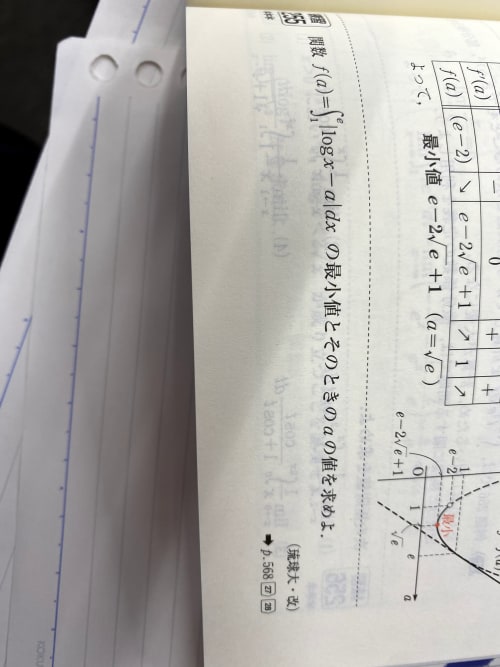 f'(a) − 0 + +
f(a) (e−2) ↘ e−2√e+1 ↗ 1 ↗
よって, 最小値 e−2√e+1 (a=√e)
1
e−2
e−2√e+1
0 1 √e e a
最小
関数 f(a)=∫₁ᵉ|log x−a|dx の最小値とそのときの a の値を求めよ.
(琉球大・改)
➡ p.568 27 28